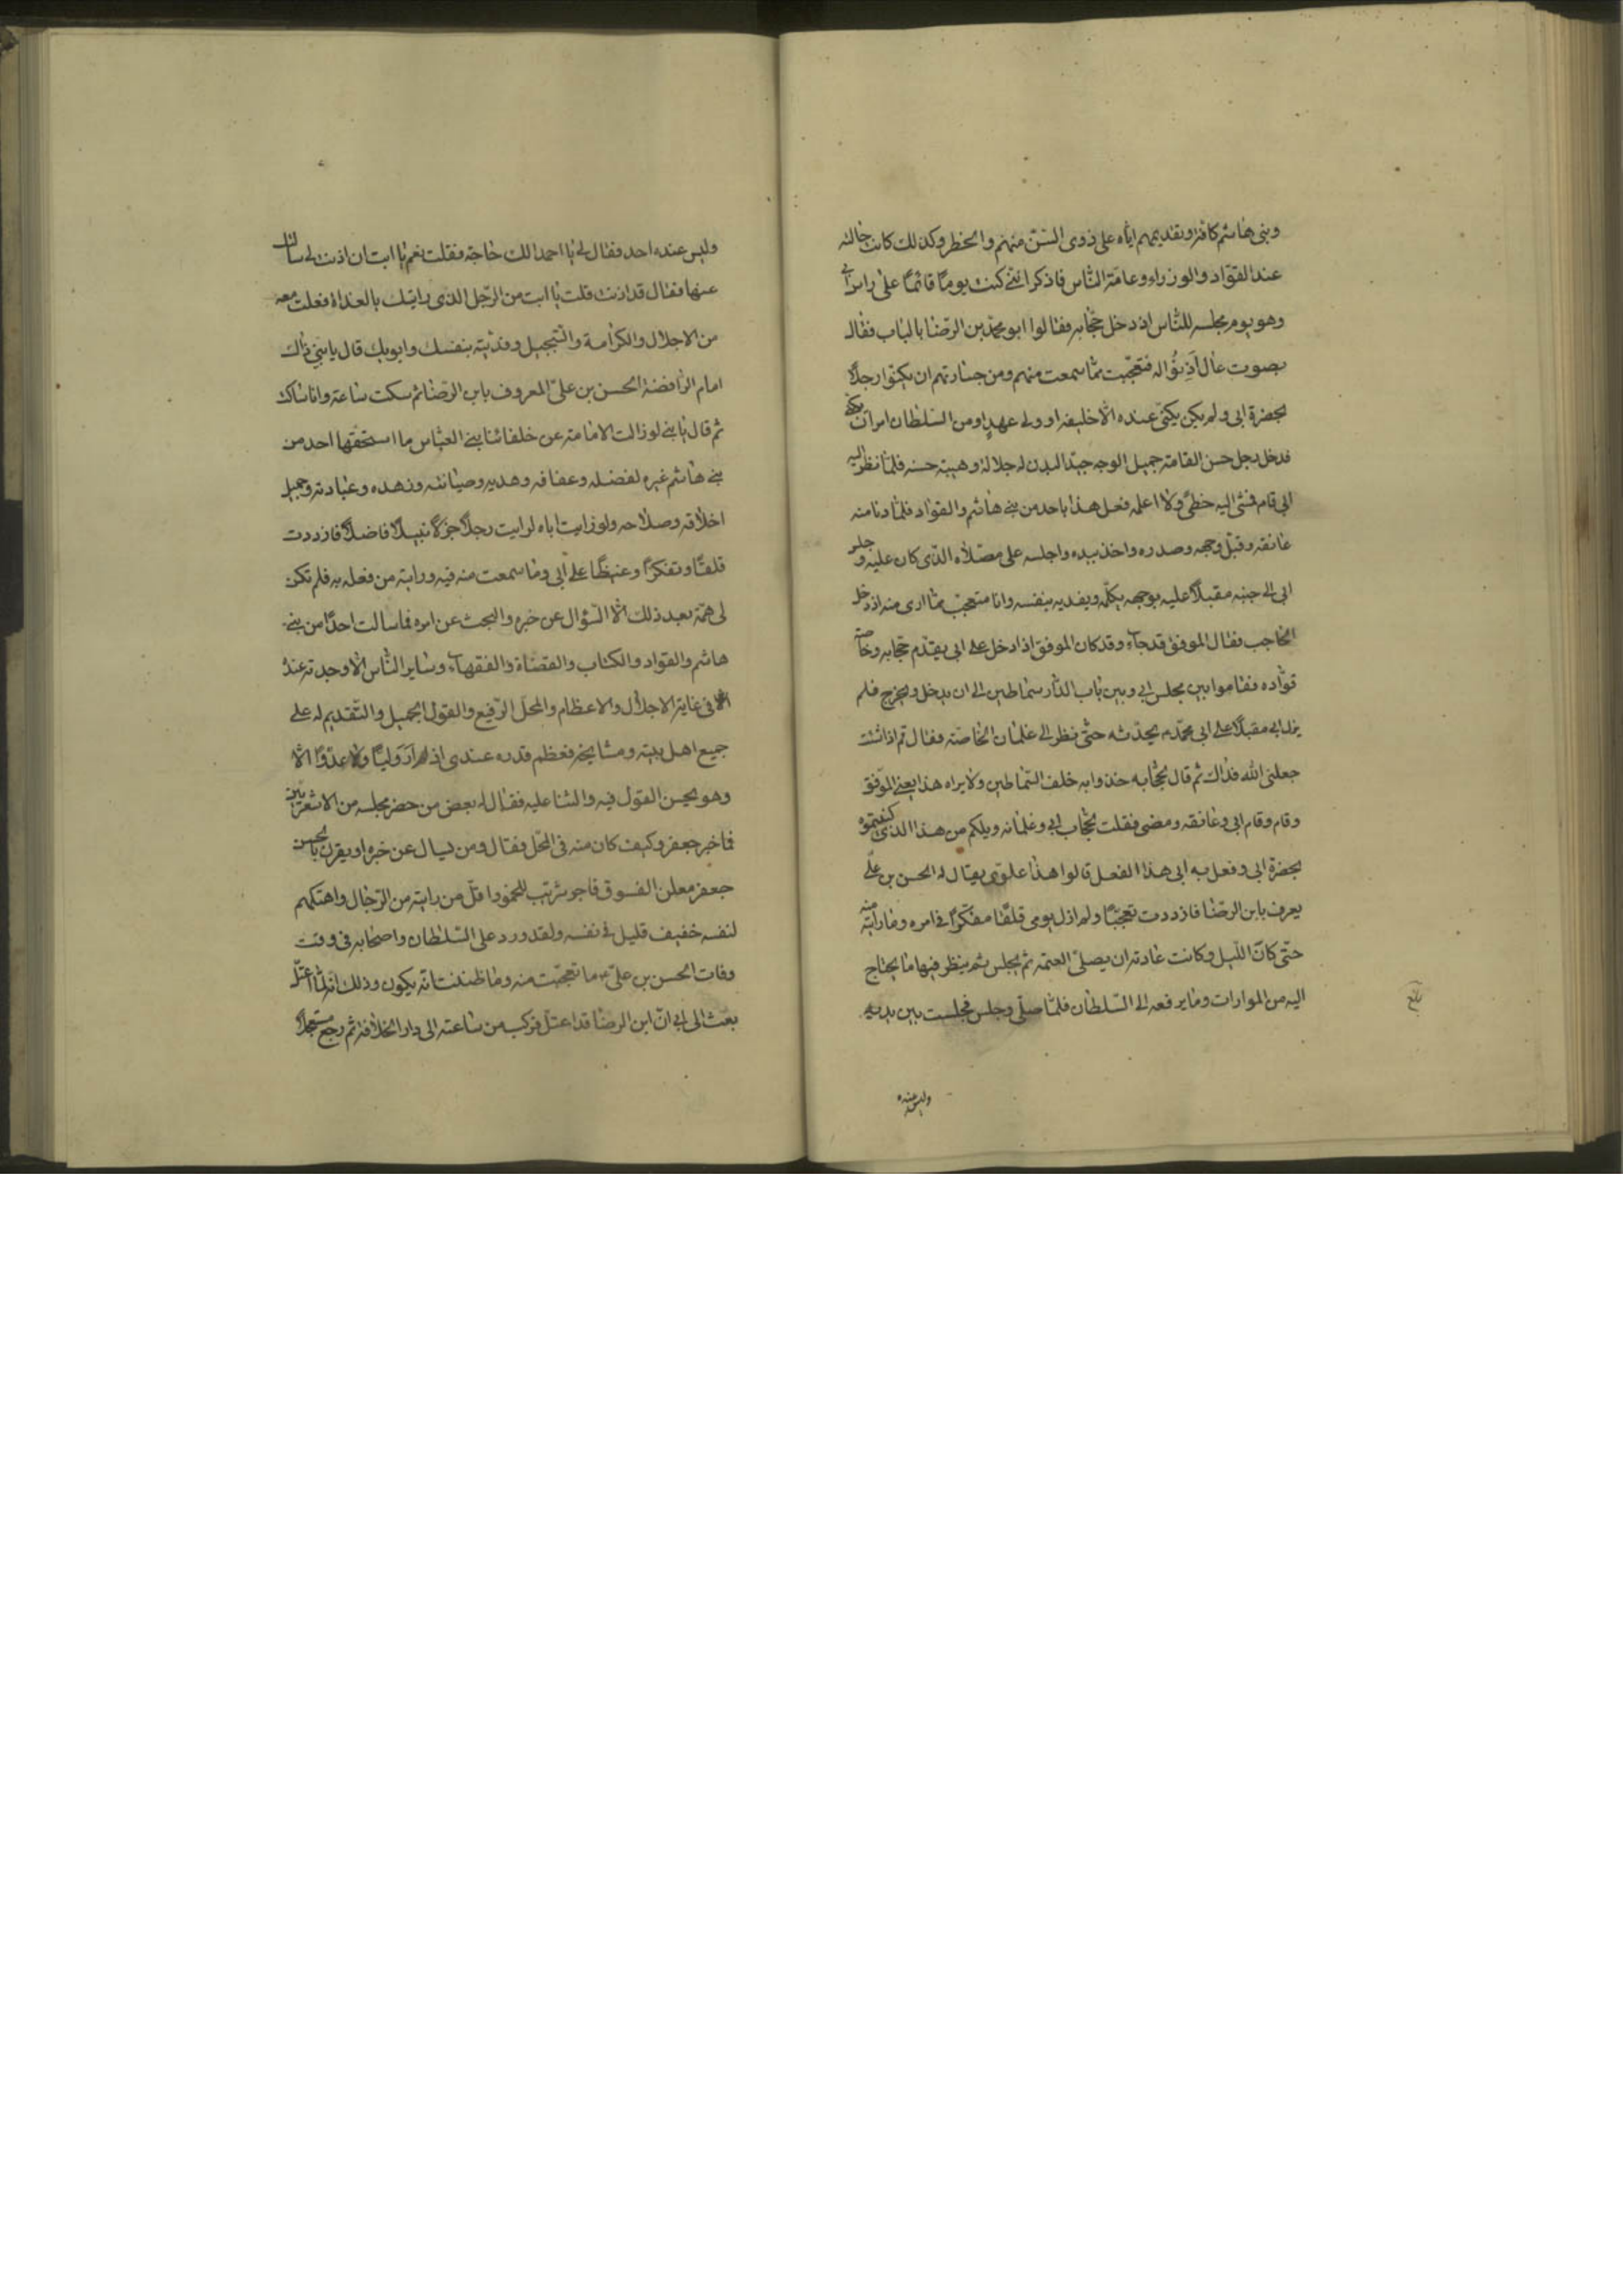 وبنى هاشم كافة وتقديمهم اياه على ذوى السنّ منهم والخطر وكذلك كانت حالته
عند القوّاد والوزراء وعامة النّاس فاذكر اننى كنت يومًا قائمًا على راس ابى
وهو يوم مجلسه للنّاس اذ دخل حجّابه فقالوا ابو محمّد بن الرّضا بالباب فقال
بصوت عال اَذِنوُا له فتعجّبت ممّا سمعت منهم ومن جسارتهم ان يكنّوا رجلًا
بحضرة ابى ولم يكن يكنّى عنده الّا خليفة او ولى عهدٍ او من السّلطان امر ان يكنّى
فدخل رجل حسن القامة جميل الوجه جيّد البدن له جلالة وهيبة حسنه فلمّا نظر اليه
ابى قام فمشى اليه خطىً ولا اعلمه فعل هذا باحد من بنى هاشم والقوّاد فلمّا دنا منه
عانقه وقبّل وجهه وصدره واخذ بيده واجلسه على مصلّاه الّذى كان عليه وجلس
ابى الى جنبه مقبلًا عليه بوجهه يكلّمه ويفديه بنفسه وانا متعجّب ممّا ارى منه اذ دخل
الحاجب فقال الموفق قد جاء وقد كان الموفق اذا دخل على ابى يقدّم حجّابه وخاصّة
قوّاده فقاموا بين مجلس ابى وبين باب الدّار سماطين الى ان يدخل ويخرج فلم
يزل ابى مقبلًا على ابى محمّد يحدّثه حتّى نظر الى غلمان الخاصّة فقال ثم اذا شئت
جعلنى الله فداك ثم قال لحجّابه خذوا به خلف السّماطين ولا يراه هذا يعنى الموفّق
وقام وقام ابى وعانقه ومضى فقلت لحجّاب ابى وغلمانه ويلكم من هذا الّذى كنيتموه
بحضرة ابى وفعل به ابى هذا الفعل قالوا هذا علوّى يقال له الحسن بن علّى
يعرف بابن الرضّا فازددت تعجّبًا ولم ازل يومى قلقًا مفكّرًا فى امره وما رايته منه
حتّى كان اللّيل وكانت عادته ان يصلّى العتمة ثم يجلس ثم ينظر فيها ما يحتاج
اليه من الموارات وما يرفعه الى السّلطان فلمّا صلّى وجلس فجلست بين يديه
بلغ
وليس عنده
وليس عنده احد فقال لى يا احمد الك حاجة فقلت نعم يا ابت ان اذنت لى سالتك
عنها فقال قد اذنت قلت يا ابت من الرّجل الذى رايتك بالغداة فعلت معه
من الاجلال والكرامة والتّبجيل وفديته بنفسك وابويك قال يا بنىّ ذاك
امام الرّافضة الحسن بن علىّ المعروف بابن الرّضا ثم سكت ساعة وانا ساكت
ثم قال يا بنى لو زالت الامامة عن خلفائنا بنى العبّاس ما استحقّها احد من
بنى هاشم غيره لفضله وعفافه وهديه وصيانته وزهده وعبادته وجميل
اخلاقه وصلاحه ولو رايت اباه لرايت رجلًا جزلًا نبيلًا فاضلًا فازددت
قلقًا وتفكرًا وغيظًا على ابى وما سمعت منه فيه ورايته من فعله به فلم تكن
لى همّة بعد ذلك الّا السّؤال عن خبره والبحث عن امره فما سالت احدًا من بنى
هاشم والقواد والكتاب والقضاة والفقهاء وساير النّاس الّا وجدته عنده
فى غاية الاجلال والاعظام والمحلّ الرّفيع والقول الجميل والتّقديم له على
جميع اهل بيته ومشايخه فعظم قدره عندى اذ لم ار وليًا ولا عدوًا الّا
وهو يحسن القول فيه والثنا عليه فقال له بعض من حضر مجلسه من الاشعريّين
فاخبر جعفر وكيف كان منه فى المحلّ فقال ومن يسال عن خبره او يقرن بالحسن
جعفر معلن الفسوق فاجر شرّيب للخمور اقلّ من رايته من الرّجال واهتكهم
لنفسه خفيف قليل فى نفسه ولقد ورد على السّلطان واصحابه فى وقت
وفات الحسن بن علىّ ما تعجّبت منه وما ظننت انّه يكون وذلك انه لمّا اعتلّ
بعث الى ابى انّ ابن الرضا قد اعتلّ فركب من ساعته الى دار الخلافة ثم رجع مستعجلًا